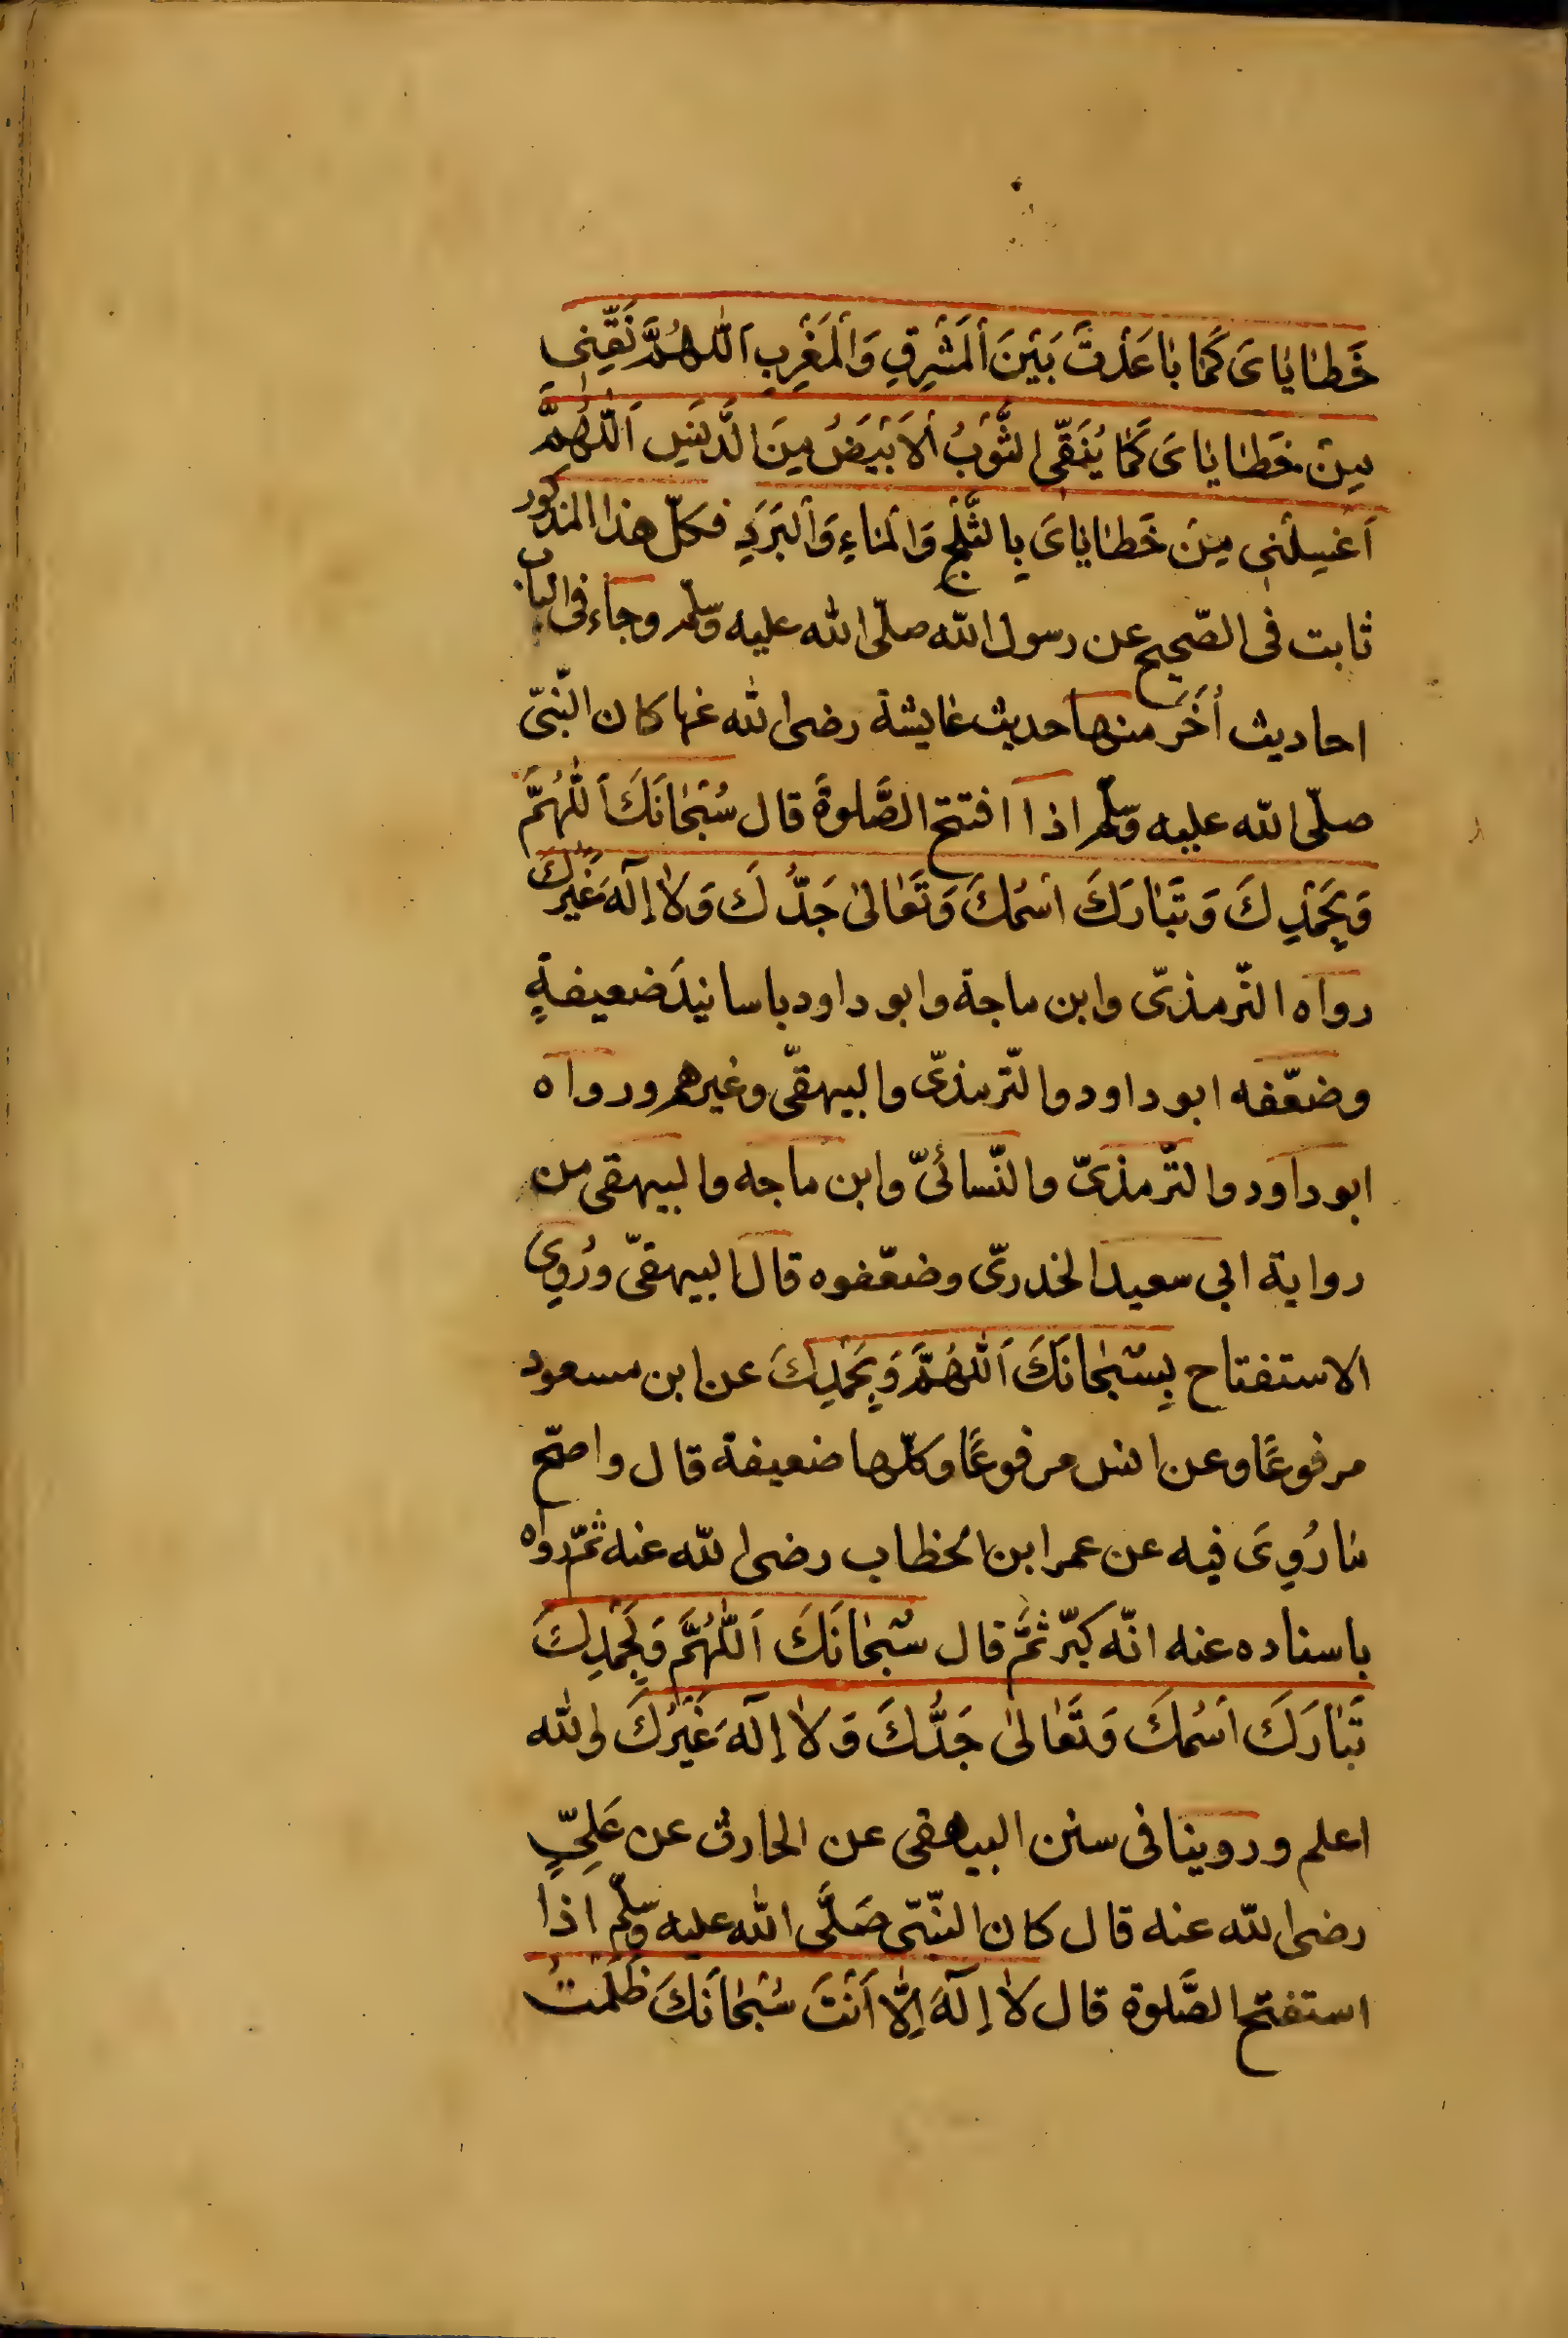 خَطَايَايَ كَمَا بَاعَدْتَ بَيْنَ الْمَشْرِقِ وَالْمَغْرِبِ اَللّٰهُمَّ نَقِّنِي
مِنْ خَطَايَايَ كَمَا يُنَقَّى الثَّوْبُ الْاَبْيَضُ مِنَ الدَّنَسِ اَللّٰهُمَّ
اَغْسِلْنِي مِنْ خَطَايَايَ بِالثَّلْجِ وَالْمَاءِ وَالْبَرَدِ فكلّ هذا المذكور
ثابت فى الصّحيح عن رسول الله صلّى الله عليه وسلّم وجاء فى الباب
احاديث أُخَر منها حديث عايشة رضى الله عنها كان النّبىّ
صلّى الله عليه وسلّم اذا افتتح الصَّلوةَ قال سُبْحَانَكَ اَللّٰهُمَّ
وَبِحَمْدِكَ وَتَبَارَكَ اسْمُكَ وَتَعَالىٰ جَدُّكَ وَلَا إِلٰهَ غَيْرُكَ
رواه التّرمذىّ وابن ماجة وابو داود باسانيدَ ضعيفةٍ
وضعّفه ابو داود والتّرمذىّ والبيهقىّ وغيرهم ورواه
ابو داود والتّرمذىّ والنّسائىّ وابن ماجه والبيهقى من
رواية ابى سعيد الخدرىّ وضعّفوه قال البيهقىّ ورُوِىَ
الاستفتاح بِسُبْحَانَكَ اَللّٰهُمَّ وَبِحَمْدِكَ عن ابن مسعود
مرفوعًا وعن انس مرفوعًا وكلّها ضعيفة قال واصحّ
مَا رُوِىَ فيه عن عمر ابن الخطاب رضى الله عنه ثمّ رواه
باسناده عنه انّه كبّر ثمَّ قال سُبْحَانَكَ اَللّٰهُمَّ وَبِحَمْدِكَ
تَبَارَكَ اسْمُكَ وَتَعَالىٰ جَدُّكَ وَلَا إِلٰهَ غَيْرُكَ والله
اعلم وروينا فى سنن البيهقى عن الحارث عن عَلِيٍّ
رضى الله عنه قال كان النّبىّ صَلَّى الله عليه وسلّم اذا
استفتح الصَّلوة قال لَا إِلٰهَ اِلَّا اَنْتَ سُبْحَانَكَ ظَلَمْتُ